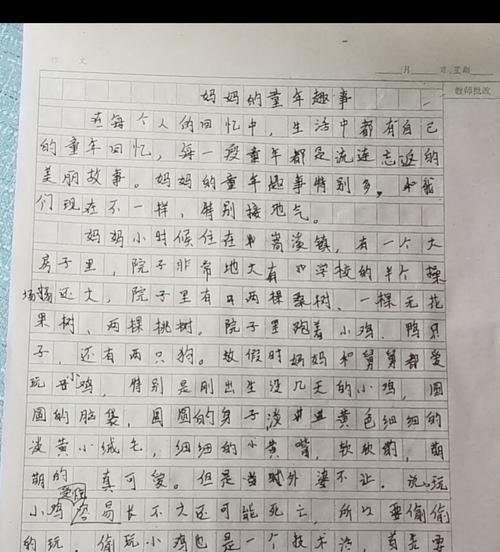 作 文
月 日 星期
教师批改
妈妈的童年趣事
在每个人的回忆中，生活中都有自己
的童年回忆，每一段童年都是流连忘返的
美丽故事。妈妈的童年趣事特别多。和我
们现在不一样，特别接地气。
妈妈小时候住在嵩溪镇，有一个大
房子里，院子非常地大有 学校的半个操
场还大，院子里有两棵桑树，一棵无花
果树，两棵桃树。院子里跑着小鸡，鸭
子，还有两只狗。放假时妈妈和舅舅都爱
玩小鸡，特别是刚出生没几天的小鸡，圆
圆的脑袋，圆圆的身子淡黄色细细的
淡黄小绒毛，细细的小黄嘴，软软的，萌
萌的 真可爱。但是当时外婆不让，说玩
小鸡 易长不大还可能死亡，所以要偷偷
的玩。偷玩小鸡也是一个技术活，首先要